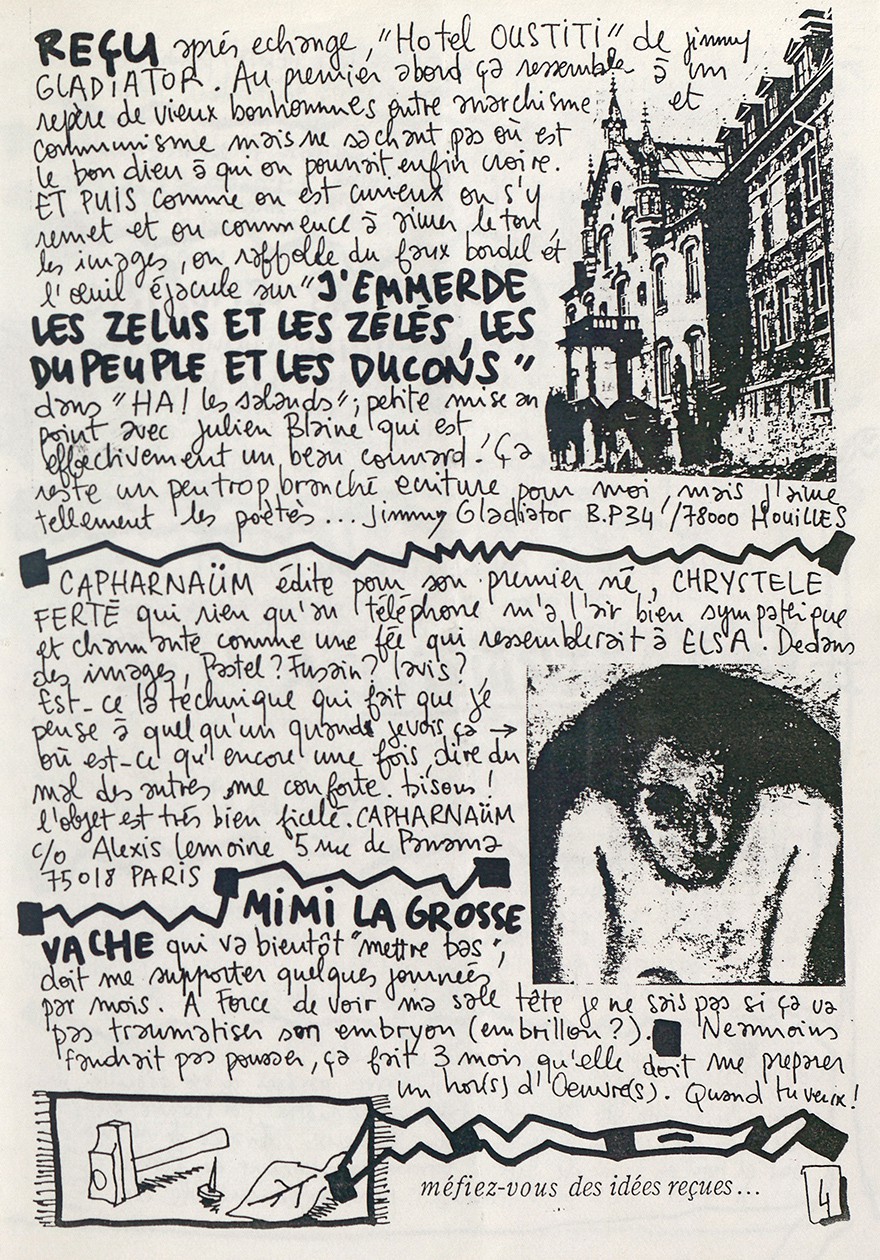 REÇU aprés echange, "Hotel OUSTITI" de jimmy
GLADIATOR. Au premier abord ça ressemble à un
repère de vieux bonhommes entre anarchisme et
communisme mais ne sachant pas où est
le bon dieu à qui on pourrait enfin croire.
ET PUIS comme on est curieux on s'y
remet et on commence à aimer le ton,
les images, on raffolle du faux bordel et
l'œuil éjacule sur "J'EMMERDE
LES ZELUS ET LES ZÉLÉS, LES
DUPEUPLE ET LES DUCONS"
dans "HA! les salauds"; petite mise au
point avec Julien Blaine qui est
effectivement un beau connard! Ça
reste un peu trop branché ecriture pour moi, mais j'aime
tellement les poétes... Jimmy Gladiator B.P34 /78000 HOUILLES
CAPHARNAÜM édite pour son premier né, CHRYSTELE
FERTÉ qui rien qu'au téléphone m'a l'air bien sympathique
et charmante comme une fée qui ressemblerait à ELSA. Dedans
des images, Pastel? Fusain? lavis?
Est-ce la technique qui fait que je
pense à quelqu'un quands je vois ça →
où est-ce qu'encore une fois, dire du
mal des autres me conforte. bisous!
l'objet est trés bien ficelé. CAPHARNAÜM
c/o Alexis Lemoine 5 rue de Panama
75018 PARIS
MIMI LA GROSSE
VACHE qui va bientôt "mettre bas";
doit me supporter quelques journées
par mois. A Force de voir ma sale tête je ne sais pas si ça va
pas traumatiser son embryon (embrillon?). Neanmoins
faudrait pas pousser, ça fait 3 mois qu'elle doit me preparer
un hor(s) d'Oeuvre(s). Quand tu veux!
méfiez-vous des idées reçues...
4